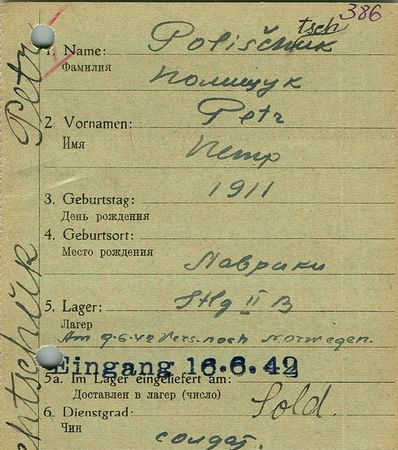 386
tsch
1. Name: Poliščuk
Фамилия
Полищук
2. Vornamen: Petr
Имя
Петр
1911
3. Geburtstag:
День рождения
4. Geburtsort:
Место рождения
Лаврики
5. Lager: Stlg II B
Лагерь
Am 9.6.42 Vers. nach Norwegen.
Eingang 16.6.42
5a. Im Lager eingeliefert am:
Доставлен в лагерь (число)
6. Dienstgrad: Sold.
Чин
солдат.
Petr
chtschuk